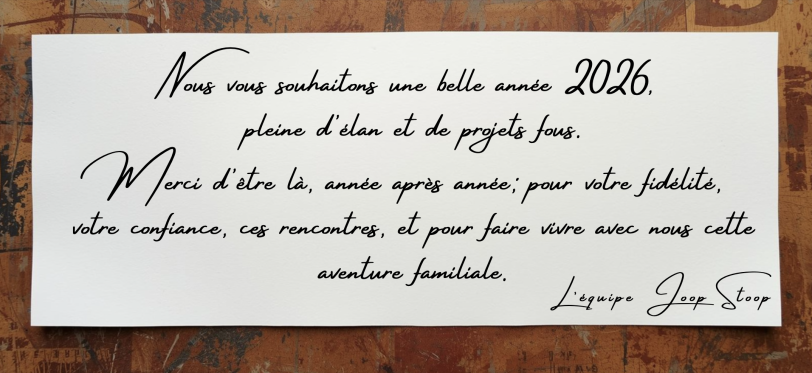 Nous vous souhaitons une belle année 2026,
pleine d'élan et de projets fous.
Merci d'être là, année après année; pour votre fidélité,
votre confiance, ces rencontres, et pour faire vivre avec nous cette
aventure familiale.
L'équipe Joop Stoop